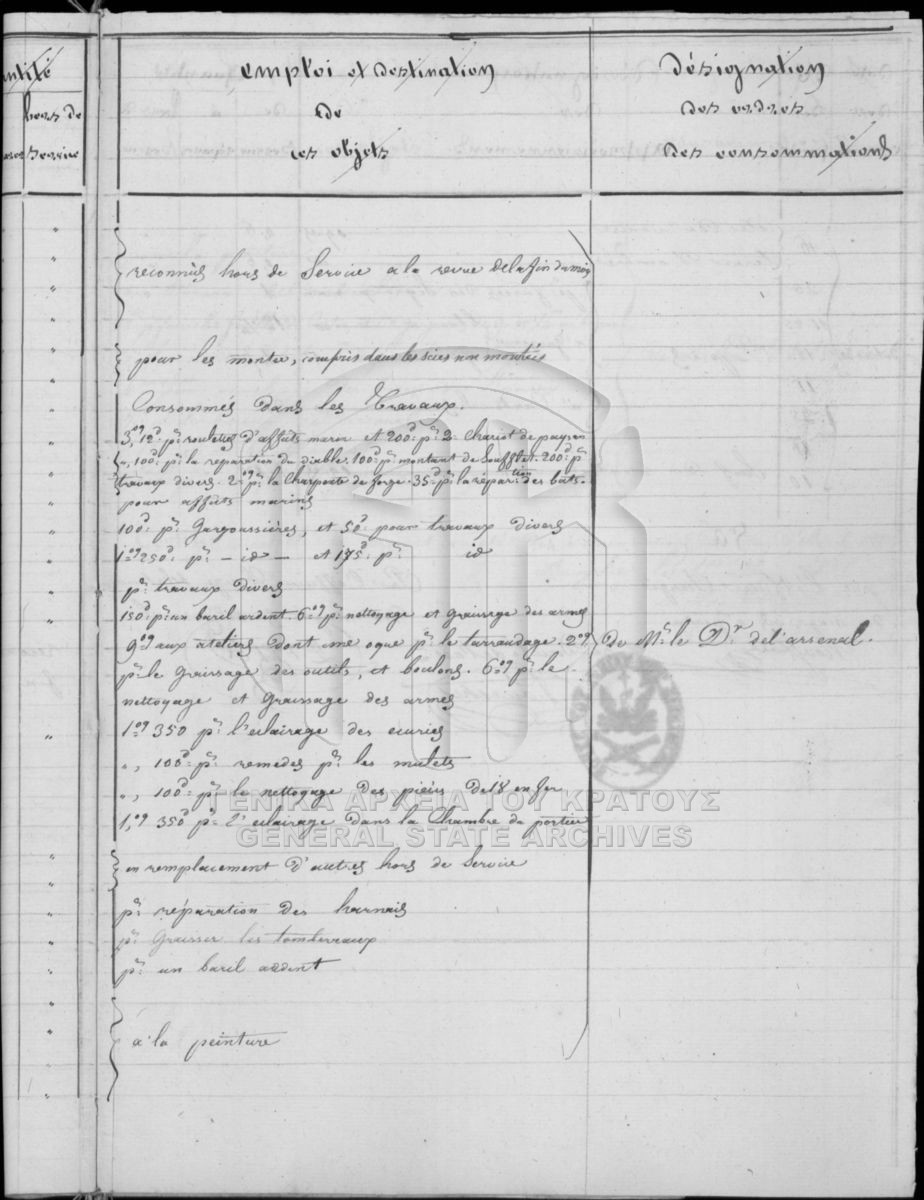 emploi et destination
de
ces objets
Désignation
des ordres
des consommations
hors de
Service
reconnûs hors de Service a la revue de la fin du mois
pour les monter, compris dans les scies non montées
Consommés dans les Travaux.
3,og 12d. pr. roulettes d'affuts marin et 200d. pr. 2 chariot de paysan
", 100d. pr. la réparation du diable. 100d. pr. montant de Soufflet. 200d. pr.
travaux divers. 2og pr. la Charpente de forge. 35d. pr. la réparation des bâts.
pour affuts marins
100d. pr. Gargoussières, et 50d. pour travaux divers
1og 250d. pr. — id — et 175d. pr. id
pr. travaux divers
150d. pr. un baril ardent. 6og pr. nettoyage et graissage des armes
9og aux ateliers dont une oque pr. le tarraudage. 2og
pr. le graissage des outils, et boulons. 6og pr. le
nettoyage et Graissage des armes
1og 350 pr. l'eclairage des ecuries
", 100d. pr. remedes pr. les mulets
", 100d. pr. le nettoyage des pièces de 18 en fer
1,og 350d. pr. l'eclairage dans la Chambre de portier
en remplacement d'autres hors de Service
pr. réparation des harnais
pr. Graisser les tombereaux
pr. un baril ardent
a la peinture
Do Mr. le Dr. de l'arsenal.
ΓΕΝΙΚΑ ΑΡΧΕΙΑ ΤΟΥ ΚΡΑΤΟΥΣ
GENERAL STATE ARCHIVES